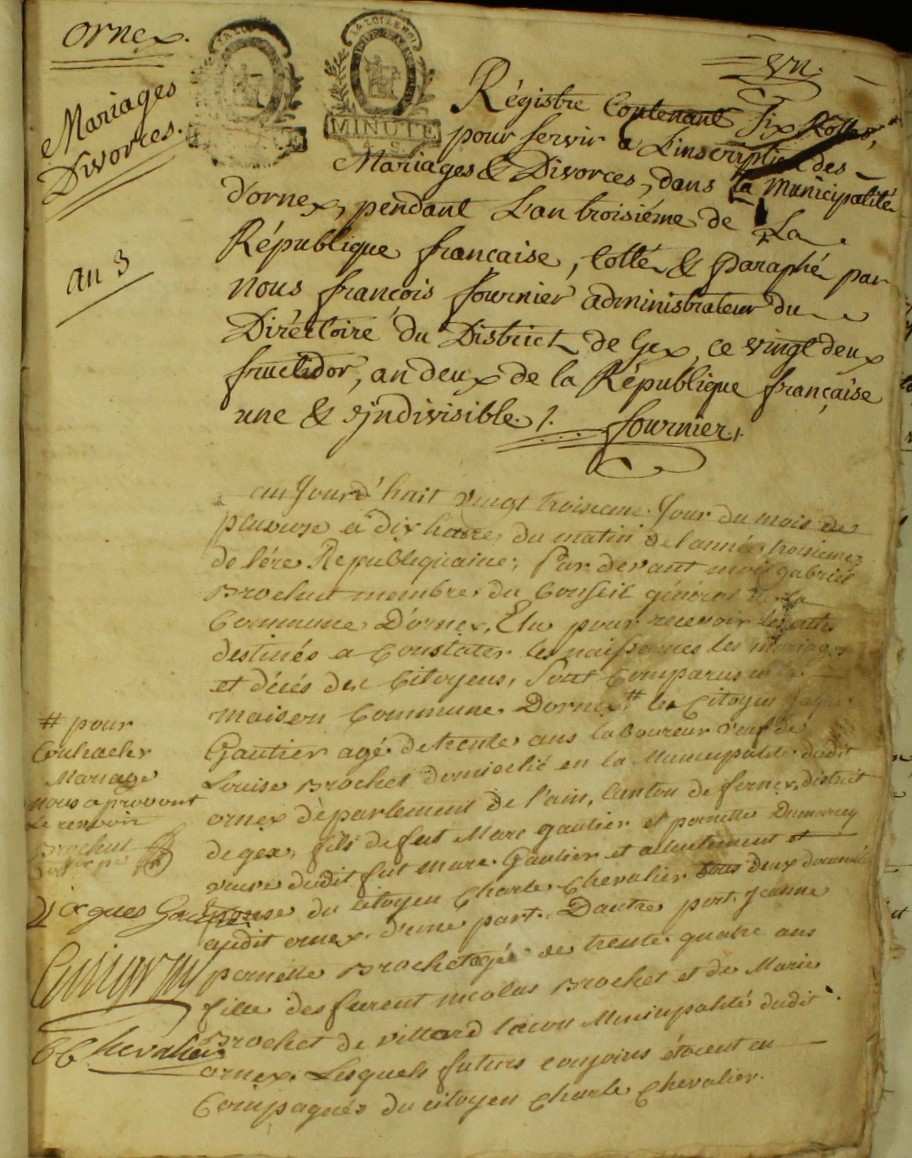 ornex.
Mariages
Divorces.
an 3
MINUTE
un
Régistre Contenant Six Rolles,
pour servir a L'inscription des
Mariages & Divorces, dans la Municipalité
d'ornex, pendant L'an troisiéme de La
République française, Cotté & Paraphé par
nous françois fournier administrateur du
Directoire du District de Gex, ce vingt deux
fructidor, an deux de la République française
une & Indivisible ./. fournier
aujourd'huit vingt troisieme Jour du mois de
pluviose a dix heures du matin de l'année troisieme
de l'ére Republiquaine, Par devant moi gabriel
Brochut membre du Conseil général de la
Commune D'ornex, Elu pour recevoir les actes
destinés a Constater les naissances les mariages
et décés des Citoyens, Sont Comparus en la
maison Commune Dornex # le Citoyen
Gautier agé de trente ans laboureur veuf de
Louise Brochet domicilié en la Municipalité dudit
ornex département de l'ain, Canton de fernex, district
de gex, fils de feu Marc gautier et pernette
veuve dudit feu marc Gautier et actuelement
Epouse du citoyen Charle Chevalier tous deux
audit ornex d'une part. Dautre part Jeanne
pernette Brochet agé de trente quatre ans
fille des furent nicolas Brochet et de Marie
Brochet de villard tacon Municipalité dudit
ornex. Lesquels futurs conjoins étoient en
Compagnés du citoyen Charle Chevalier.
# pour
Contracter
Mariage
nous aprovont
le renvoir
Brochut
Jacques Gautier
C Chevalier